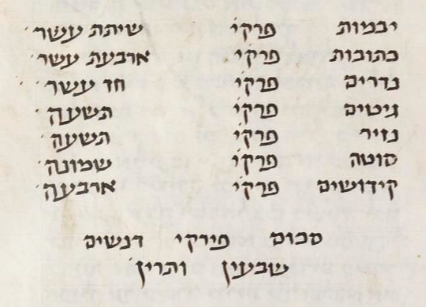 יבמות פרקי שיתת עשר
כתובות פרקי ארבעת עשר
נדרים פרקי חד עשר
גיטים פרקי תשעה
נזיר פרקי תשעה
סוטה פרקי שמונה
קידושים פרקי ארבעה
סכום פירקי דנשים
שבעין ותרין